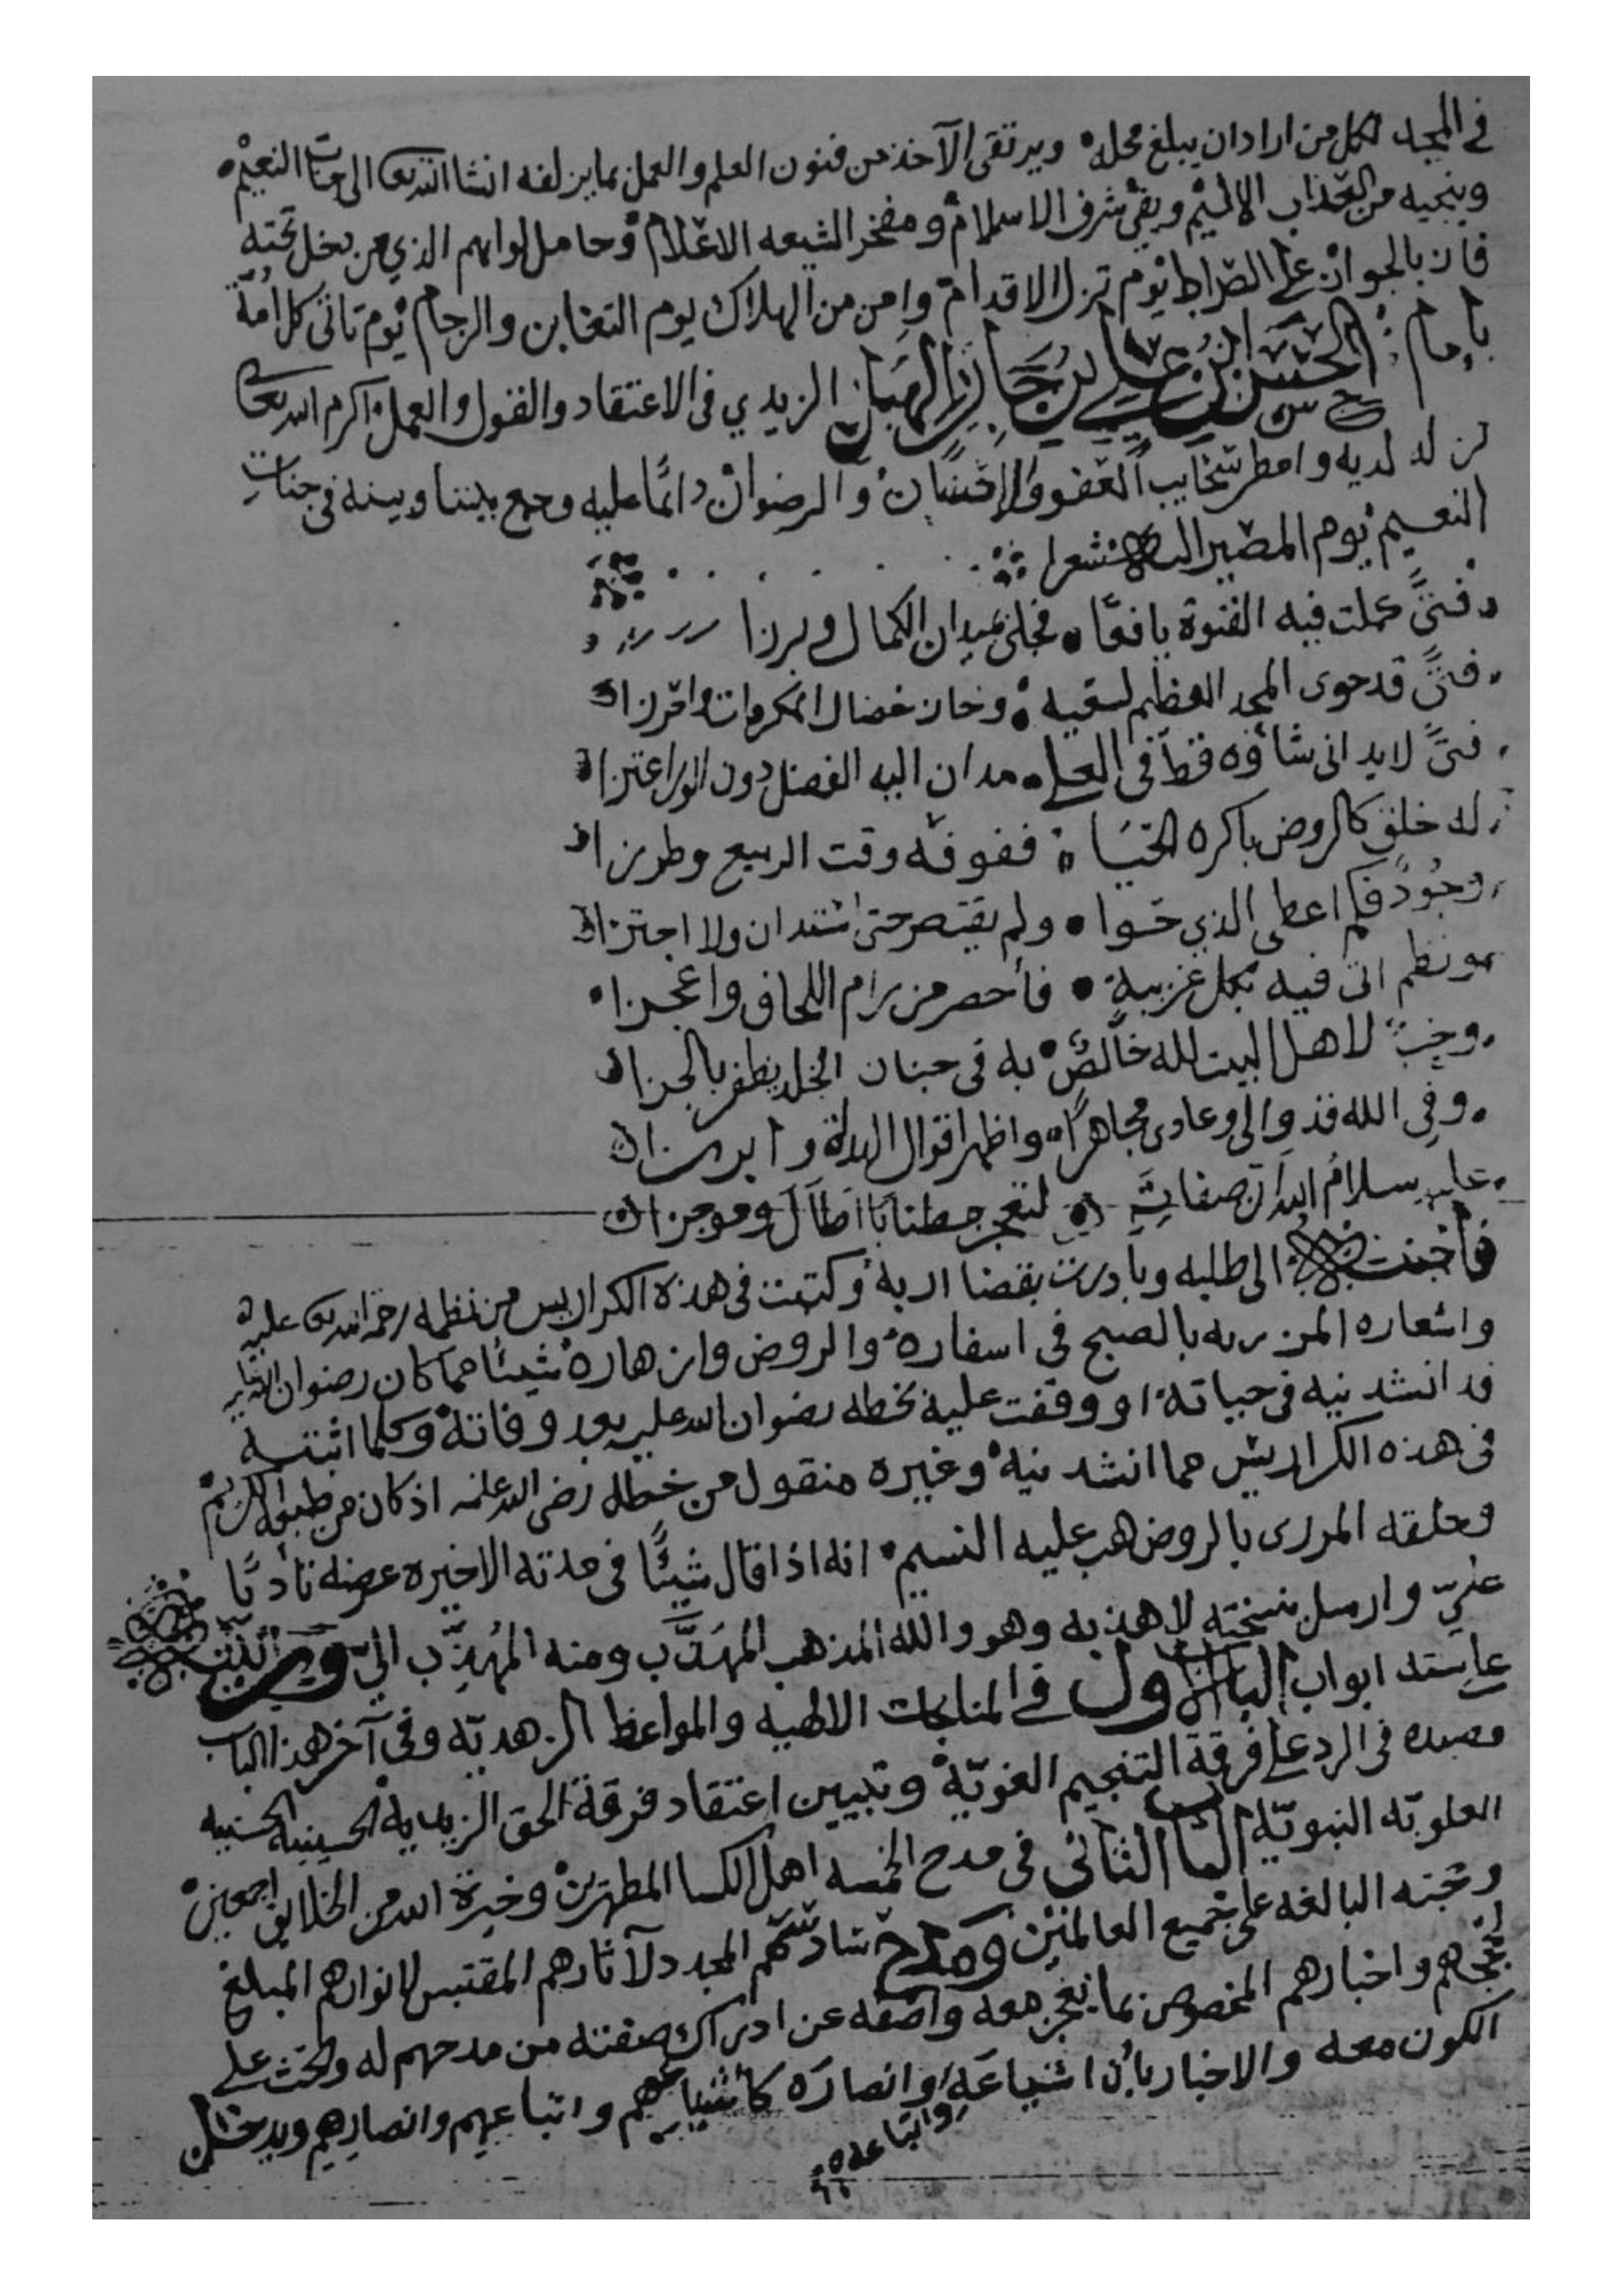 في المجد لكل من اراد ان يبلغ محله ويرتقي الآخذ من فنون العلم والعمل بما يزلفه انشا الله تعالى الى جنات النعيم
وينجيه من العذاب الاليم وبقي شرف الاسلام ومفخر الشيعه الاعلام وحامل لوايهم الذي من يدخل تحته
فاز بالجواز على الصراط يوم تزل الاقدام وامن من الهلاك يوم التغابن والزحام يوم تاتي كل امة
بإمام الحسن بن علي بن جابر الهبل الزيدي في الاعتقاد والقول والعمل اكرم الله تعالى
نزله لديه وامطر سحايب العفو والاحسان والرضوان دائما عليه وجمع بيننا وبينه في جنات
النعيم يوم المصير اليه شعرا
فتىً كملت فيه الفتوة يافعًا فجلى بميدان الكمال وبرزا
فتىً قد حوى المجد العظيم لسعيه وحاز خصال المكرمات واحرزا
فتىً لا يدانى شاؤه قط في العلى مدان اليه الفضل دون الورى اعتزا
له خلق كالروض باكره الحيا ففوفه وقت الربيع وطرزا
وجُودٌ فكم اعطى الذي حوا ولم يقتصر حتى استدان ولا اجتزا
ونظم اتى فيه بكل غريبة فأحصر من رام اللحاق واعجزا
وحبٌ لاهل البيت لله خالصٌ به في جنان الخلد يظفر بالجزا
وفي الله قد والى وعادى مجاهرًا واظهر اقوال الهداة وابرزا
عليه سلام الله ان صفاته لتعجز مطنابا اطال وموجزا
فأجبت الى طلبه وبادرت بقضا اربه وكتبت في هذه الكراريس من نظمه رحمة الله تعالى عليه
واشعاره المزريه بالصبح في اسفاره والروض وازهاره شيئا مما كان رضوان الله عليه
قد انشدنيه في حياته او وقفت عليه بخطه رضوان الله عليه بعد وفاته وكلما اثبته
في هذه الكراريس مما انشدنيه وغيره منقول من خطه رضي الله عنه اذ كان من طبعه الكريم
وخلقه المزرى بالروض هب عليه النسيم انه اذا قال شيئًا في مدته الاخيره عرضه تأدبًا
عليّ وارسل بنسخته لاهذبه وهو والله المذهب المهذَّب ومنه المُهذِّب اليّ ورتبته
على سته ابواب الباب الاول في المناجات الالهيه والمواعظ الزهديه وفي آخر هذا الباب
قصيده في الرد على فرقة التنجيم الغويّة وتبيين اعتقاد فرقة الحق الزيديه الحسينيه الحسنيه
العلويّه النبويّه الباب الثاني في مدح الخمسه اهل الكسا المطهرين وخيرة الله من الخلايق اجمعين
وحجته البالغه على جميع العالمين ومدح سادسهم المجدد لآثارهم المقتبس لانوارهم المبلغ
لحججهم واخبارهم المخصوص بما يعجز معه واصفه عن ادراك صفته من مدحهم له والحث على
الكون معه والاخبار بأن اشياعَه وانصاره كأشياعهم واتباعهم وانصارهم ويدخل
واتباعه